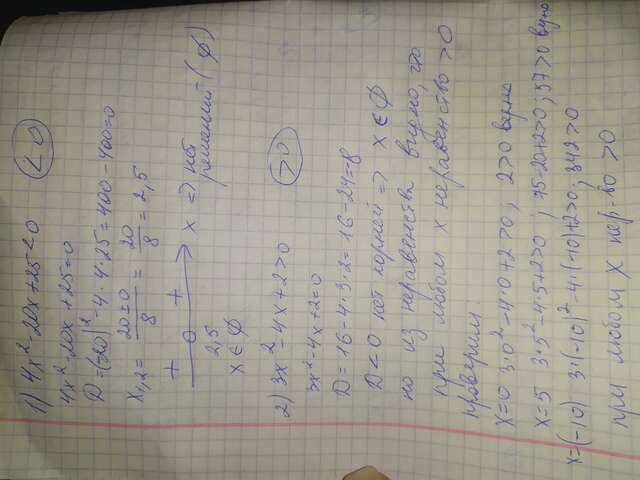 1) 4x²-20x+25<0 (<0)
4x²-20x+25=0
D=(-20)²-4·4·25=400-400=0
x₁,₂= 20±0/8 = 20/8 = 2,5
+ 0 + x => нет решений (∅)
2,5
x∈∅
2) 3x²-4x+2>0 (>0)
3x²-4x+2=0
D=16-4·3·2=16-24=-8
D<0 нет корней => x∈∅
но из неравенства видно, что
при любом x неравенство >0
проверим
x=0 3·0²-4·0+2>0; 2>0 верно
x=5 3·5²-4·5+2>0; 75-20+2>0; 57>0 верно
x=(-10) 3·(-10)²-4·(-10)+2>0; 342>0
при любом x нер-во >0